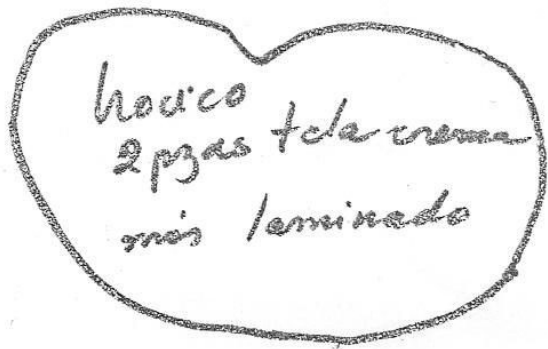 hocico
2 pzas tela crema
más laminado